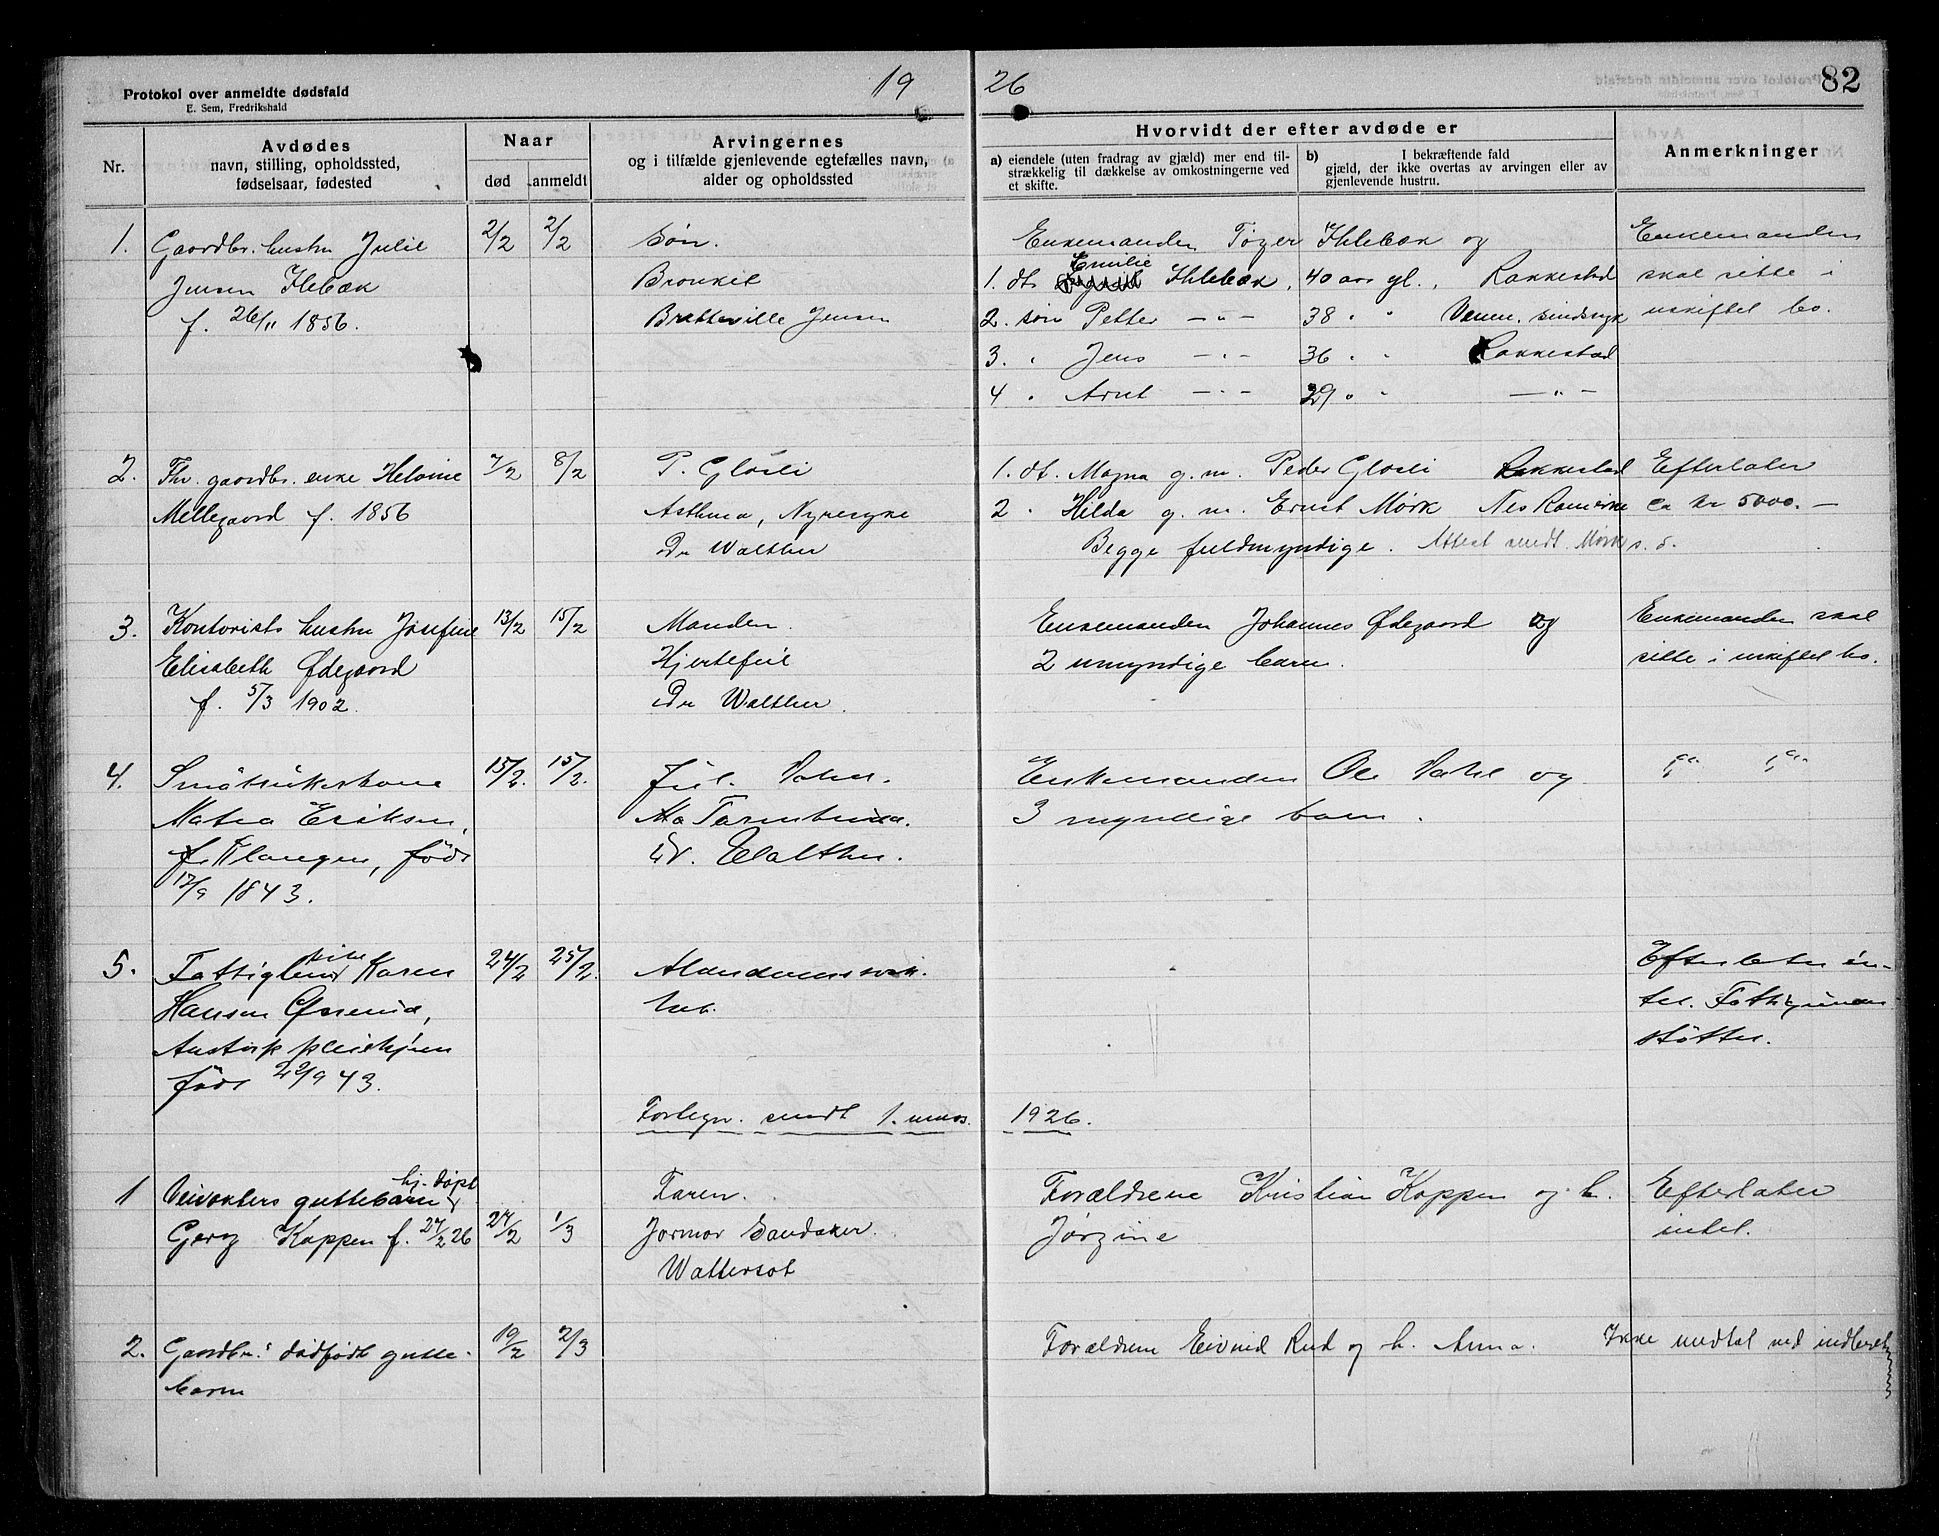 Protokol over anmeldte dødsfald
E. Sem, Fredrikshald
19 26
82
Nr.
Avdødes
navn, stilling, opholdssted,
fødselsaar, fødested
Naar
død anmeldt
Arvingernes
og i tilfælde gjenlevende egtefælles navn,
alder og opholdssted
Hvorvidt der efter avdøde er
a) eiendele (uten fradrag av gjæld) mer end til-
strækkelig til dækkelse av omkostningerne ved
et skifte.
b) I bekræftende fald
gjæld, der ikke overtas av arvingen eller av
gjenlevende hustru.
Anmerkninger
1. Gaardbr. hustru Julie
Jensen Ilebæk
f. 26/11 1856.
2/2 2/2
Søn.
Bronkit
Bratteville Jensen
Enkemanden Tøger Ihlebæk og
1. dt. Emilie Ihlebæk, 40 aar gl., Rakkestad
2. søn Petter — " — 38 " " sindssyk
3. " Jens — " — 36 " " Rakkestad
4 " Arnt — " — 29 " " — " —
Enkemanden
skal sitte i
uskiftet bo.
2. Fhv. gaardbr. enke Helvine
Mellegaard f. 1856
7/2 8/2
P. Gløsli
Asthma, Nyresyke
Dr Walther
1. dt. Magna g. m. Peder Gløsli Rakkestad
2 " Hilda g. m. Ernst Mørk Nes Romerike
Begge fuldmyndige. Attest sendt Mørk s. d.
Efterlater
ca kr 5000.—
3. Kontorists hustru Josefine
Elisabeth Ødegaard
f. 5/3 1902.
13/2 15/2
Manden.
Hjertefeil
Dr Walther.
Enkemanden Johannes Ødegaard og
2 umyndige barn.
Enkemanden skal
sitte i uskiftet bo.
4. Småbrukerkone
Matea Eriksen,
f. Klangen, født
17/9 1843.
15/2. 15/2.
Jul. Dahl.
Dr. Walther.
Enkemanden Ole Dahl og
3 myndige barn.
" "
5. Fattiglem Karen
Hansen
Austorp pleiehjem
født 22/9 43.
24/2 25/2.
Alderdomssvak-
het.
Efterlater in-
tet. Fattigunder-
støttet.
Fortegn. sendt 1. mars 1926.
1 Veivokters guttebarn hj. døpt
Georg Koppen f. 27/2 26
27/2 1/3
Faren.
Jormor Sandaker.
Wattersot
Forældrene Kristian Koppen og h.
Jørgine
Efterlater
intet.
2. Gaardbr.s dødfødt gutte-
barn
19/2 2/3
Forældrene Eivind Rud og h. Anna.
Ikke medtat ved indberetn